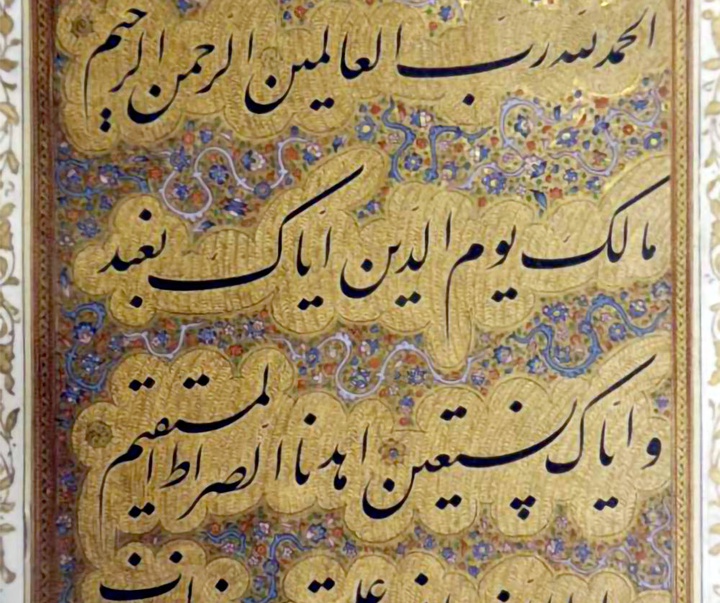 الحمد لله رب العالمین الرحمن الرحیم
مالک یوم الدین ایاک نعبد
و ایاک نستعین اهدنا الصراط المستقیم